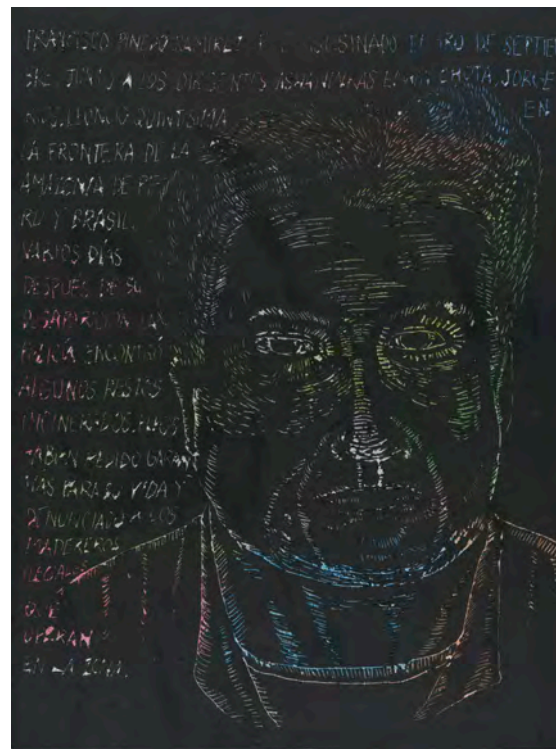 FRANCISCO PINEDO RAMIREZ ASESINADO EL 1RO DE SEPTIEM
BRE JUNTO A LOS DIRIGENTES ASHANINKAS EDWIN CHOTA, JORGE
RIOS, LEONCIO QUINTISIMA EN
LA FRONTERA DE LA
AMAZONIA DE PE
RU Y BRASIL.
VARIOS DÍAS
DESPUES DE SU
DESAPARICION LA
POLICÍA ENCONTRÓ
ALGUNOS RESTOS
INCINERADOS. ELLOS
HABIAN PEDIDO GARAN
TIAS PARA SU VIDA Y
DENUNCIADO A LOS
MADEREROS
ILEGALES
QUE
OPERAN
EN LA ZONA.